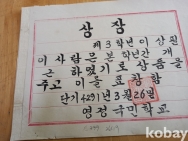 상장
제3학년 이상원
이 사람은 본 학년간 개
근 하였기로 상품을
주고 이를 표창함
단기4291년3월26일
명정국민학교
kobay